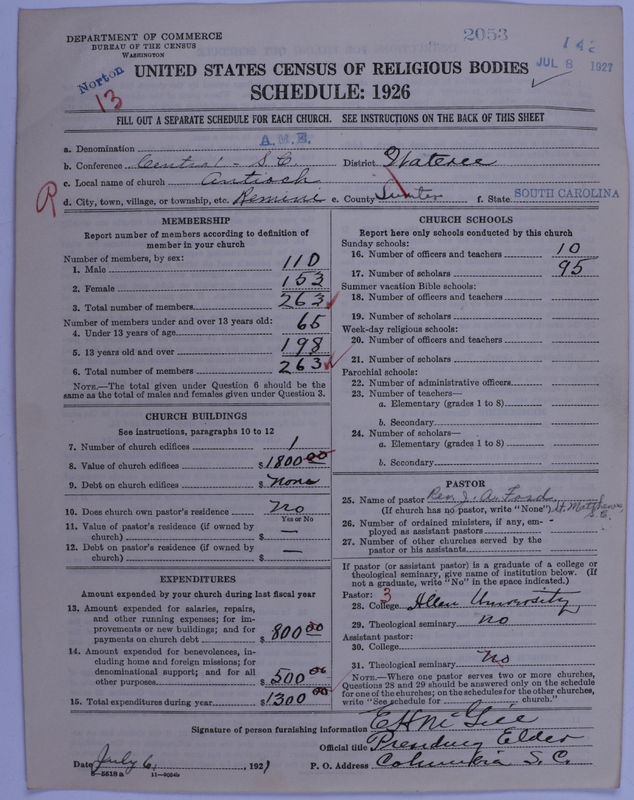 DEPARTMENT OF COMMERCE
BUREAU OF THE CENSUS
WASHINGTON
2053
142
JUL 8 1927
Norton
13
UNITED STATES CENSUS OF RELIGIOUS BODIES
SCHEDULE: 1926
FILL OUT A SEPARATE SCHEDULE FOR EACH CHURCH. SEE INSTRUCTIONS ON THE BACK OF THIS SHEET
a. Denomination A.M.E.
b. Conference Central - S.C. District Wateree
c. Local name of church Antioch
d. City, town, village, or township, etc. Remini e. County Sumter f. State SOUTH CAROLINA
MEMBERSHIP
Report number of members according to definition of
member in your church
Number of members, by sex:
1. Male 110
2. Female 153
3. Total number of members 263
Number of members under and over 13 years old:
4. Under 13 years of age 65
5. 13 years old and over 198
6. Total number of members 263
NOTE.—The total given under Question 6 should be the
same as the total of males and females given under Question 3.
CHURCH BUILDINGS
See instructions, paragraphs 10 to 12
7. Number of church edifices 1
8. Value of church edifices $ 1800.00
9. Debt on church edifices $ None
10. Does church own pastor's residence No
Yes or No
11. Value of pastor's residence (if owned by
church) $ —
12. Debt on pastor's residence (if owned by
church) $ —
EXPENDITURES
Amount expended by your church during last fiscal year
13. Amount expended for salaries, repairs,
and other running expenses; for im-
provements or new buildings; and for
payments on church debt $ 800.00
14. Amount expended for benevolences, in-
cluding home and foreign missions; for
denominational support; and for all
other purposes $ 500.00
15. Total expenditures during year $ 1300.00
CHURCH SCHOOLS
Report here only schools conducted by this church
Sunday schools:
16. Number of officers and teachers 10
17. Number of scholars 95
Summer vacation Bible schools:
18. Number of officers and teachers
19. Number of scholars
Week-day religious schools:
20. Number of officers and teachers
21. Number of scholars
Parochial schools:
22. Number of administrative officers
23. Number of teachers—
a. Elementary (grades 1 to 8)
b. Secondary
24. Number of scholars—
a. Elementary (grades 1 to 8)
b. Secondary
PASTOR
25. Name of pastor Rev. J. A. Ford
(If church has no pastor, write "None") St. Matthews, S.C.
26. Number of ordained ministers, if any, em-
ployed as assistant pastors -
27. Number of other churches served by the
pastor or his assistants
If pastor (or assistant pastor) is a graduate of a college or
theological seminary, give name of institution below. (If
not a graduate, write "No" in the space indicated.)
Pastor: 3
28. College Allen University
29. Theological seminary No
Assistant pastor:
30. College
31. Theological seminary No
NOTE.—Where one pastor serves two or more churches,
Questions 28 and 29 should be answered only on the schedule
for one of the churches; on the schedules for the other churches,
write "See schedule for church."
Signature of person furnishing information E H McGill
Official title Presiding Elder
Date July 6, 1927 P. O. Address Columbia S. C.